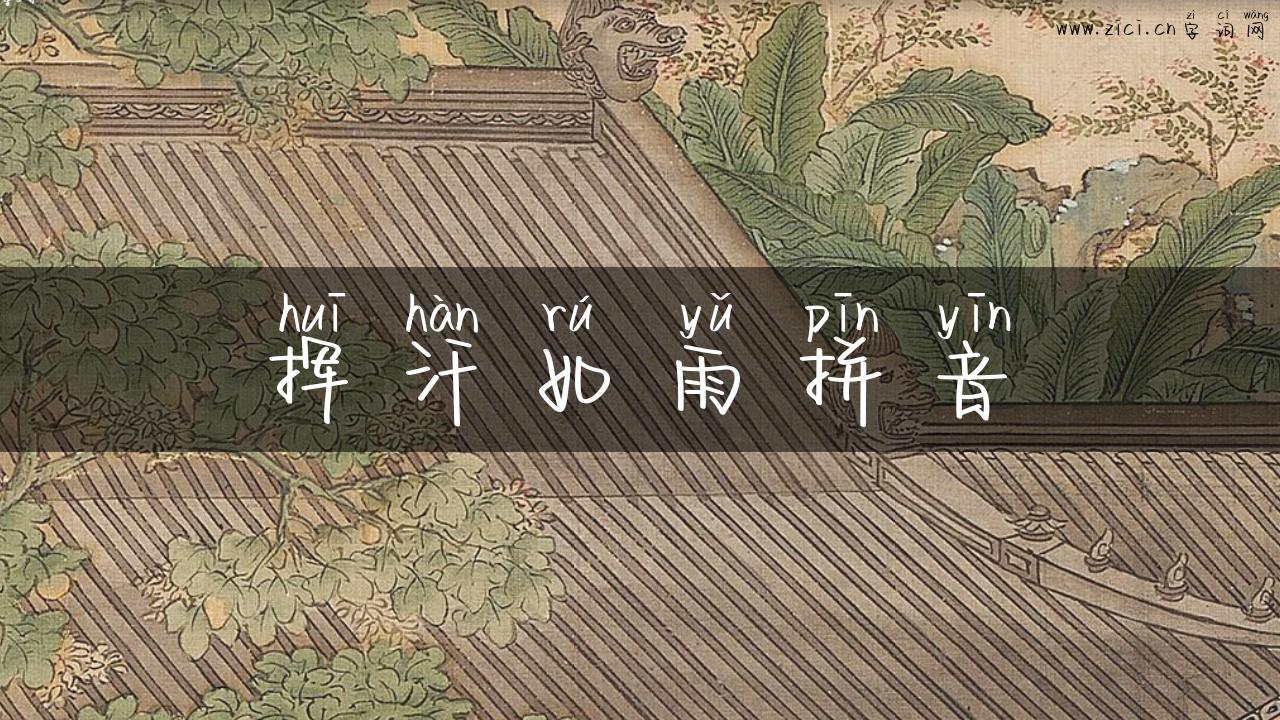 zì cí wǎng
www.zici.cn 字词网
huī hàn rú yǔ pīn yīn
挥汗如雨拼音